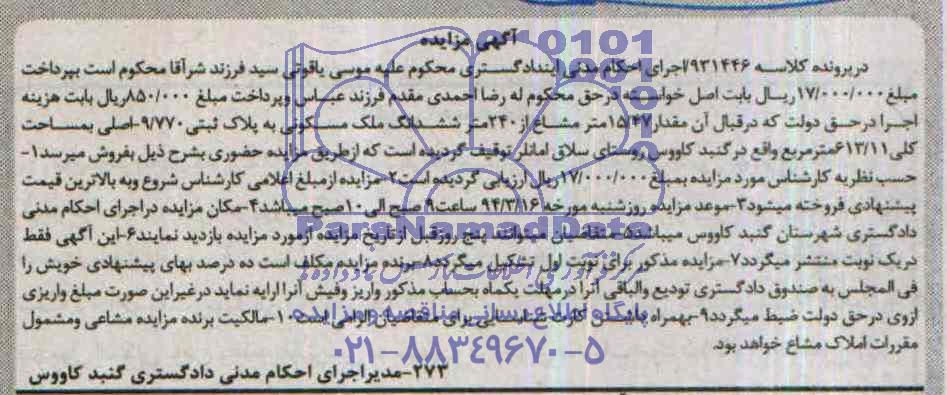 آگهی مزایده
درپرونده کلاسه ۹۳۱۴۴۶/اجرای احکام مدنی این دادگستری محکوم علیه موسی یاقوتی سید فرزند شرآقا محکوم است بپرداخت
مبلغ ۱۷/۰۰۰/۰۰۰ریال بابت اصل خواسته درحق محکوم له رضا احمدی مقدم فرزند عباس وپرداخت مبلغ ۸۵۰/۰۰۰ریال بابت هزینه
اجرا درحق دولت که درقبال آن مقدار۱۵/۴۷متر مشاع از۲۴۰متر ششدانگ ملک مسکونی به پلاک ثبتی ۹/۷۷۰-اصلی بمساحت
کلی۶۱۳/۱۱مترمربع واقع در گنبد کاووس روستای سلاق امانلر توقیف گردیده است که ازطریق مزایده حضوری بشرح ذیل بفروش میرسد۱-
حسب نظریه کارشناس مورد مزایده بمبلغ ۱۷/۰۰۰/۰۰۰ریال ارزیابی گردیده است۲-مزایده ازمبلغ اعلامی کارشناس شروع وبه بالاترین قیمت
پیشنهادی فروخته میشود۳-موعد مزایده روزشنبه مورخه ۹۴/۳/۱۶ ساعت۹ صبح الی۱۰صبح میباشد۴-مکان مزایده دراجرای احکام مدنی
دادگستری شهرستان گنبد کاووس میباشد۵-متقاضیان میتوانند پنج روزقبل ازتاریخ مزایده ازمورد مزایده بازدید نمایند۶-این آگهی فقط
دریک نوبت منتشر میگردد۷-مزایده مذکور برای نوبت اول تشکیل میگردد۸-برنده مزایده مکلف است ده درصد بهای پیشنهادی خویش را
فی المجلس به صندوق دادگستری تودیع والباقی آنرا درمهلت یکماه بحساب مذکور واریز وفیش آنرا ارایه نماید درغیراین صورت مبلغ واریزی
ازوی درحق دولت ضبط میگردد۹-بهمراه داشتن کارت شناسایی برای متقاضیان الزامی است۱۰-مالکیت برنده مزایده مشاعی ومشمول
مقررات املاک مشاع خواهد بود.
۲۷۳-مدیراجرای احکام مدنی دادگستری گنبد کاووس
ParsNamadData
پایگاه اطلاع رسانی مناقصه و مزایده
۰۲۱-۸۸۳۴۹۶۷۰-۵